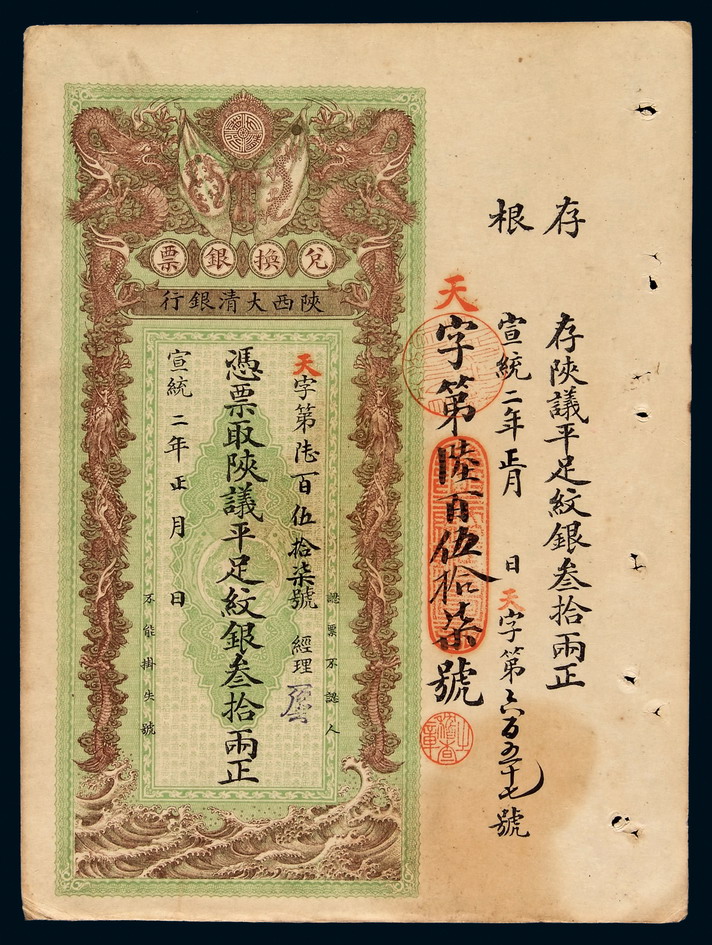 存根
存陝議平足紋銀叁拾兩正
宣統二年正月 日 天字第六百五十七號
天字第陸百伍拾柒號
兌換銀票
陝西大清銀行
認票不認人
天字第陸百伍拾柒號 經理
憑票取陝議平足紋銀叁拾兩正
宣統二年正月 日
不能掛失號